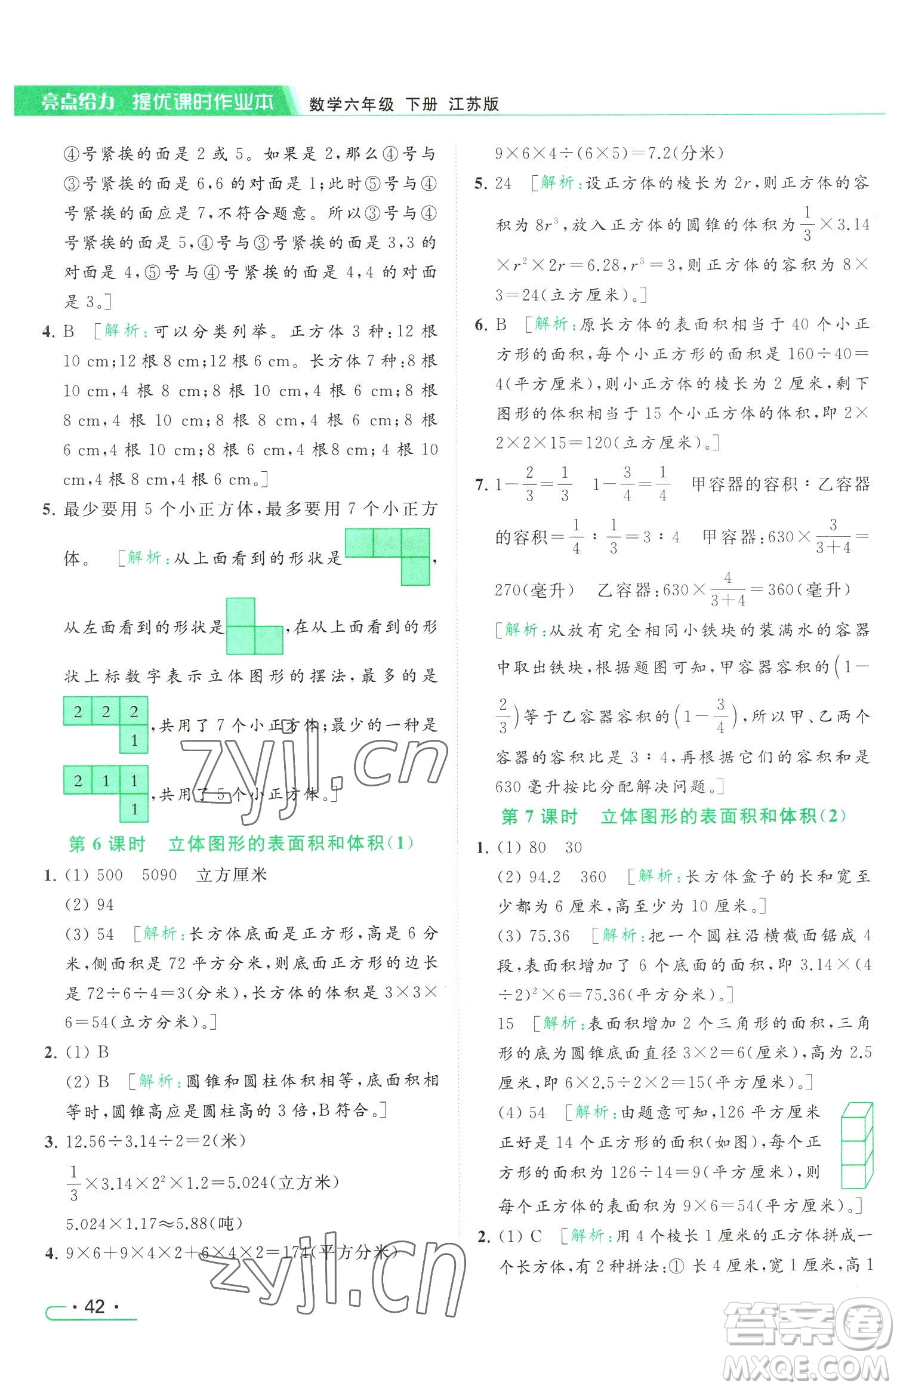 亮点给力 提优课时作业本 数学六年级 下册 江苏版
④号紧挨的面是 2 或 5。如果是 2,那么④号与
③号紧挨的面是 6,6 的对面是 1;此时⑤号与④
号紧挨的面应是 7,不符合题意。所以③号与④
号紧挨的面是 5,④号与③号紧挨的面是 5,5 的
对面是 2,⑤号与④号紧挨的面是 4,4 的对面
是 3。]
4. B [解析:可以分类列举。正方体 3 种:12 根
10 cm;12 根 8 cm;12 根 6 cm。长方体 7 种:8 根
10 cm,4 根 8 cm;8 根 10 cm,4 根 6 cm;8 根
8 cm,4 根 10 cm;8 根 8 cm,4 根 6 cm;8 根
6 cm,4 根 10 cm;8 根 6 cm,4 根 8 cm;4 根
10 cm,4 根 8 cm,4 根 6 cm。]
5. 最少要用 5 个小正方体,最多要用 7 个小正方
体。 [解析:从上面看到的形状是 ,
从左面看到的形状是 ,在从上面看到的形
状上标数字表示立体图形的摆法,最多的是
2 2 2
1 ,共用了 7 个小正方体;最少的一种是
2 1 1
1 ,共用了 5 个小正方体。]
第 6 课时 立体图形的表面积和体积(1)
1. (1) 500 5090 立方厘米
(2) 94
(3) 54 [解析:长方体底面是正方形,高是 6 分
米,侧面积是 72 平方分米,底面正方形的边长
是 72÷6÷4=3(分米),长方体的体积是 3×3×
6=54(立方分米)。]
2. (1) B
(2) B [解析:圆锥和圆柱体积相等,底面积相
等时,圆锥高应是圆柱高的 3 倍,B 符合。]
3. 12.56÷3.14÷2=2(米)
1/3×3.14×2²×1.2=5.024(立方米)
5.024×1.17≈5.88(吨)
4. 9×6+9×4×2+6×4×2=174(平方分米)
· 42 ·
9×6×4÷(6×5)=7.2(分米)
5. 24 [解析:设正方体的棱长为 2r,正方体的容
积为 8r³,放入正方体的圆锥的体积为 1/3×3.14
×r²×2r=6.28,r³=3,则正方体的容积为 8×
3=24(立方厘米)。]
6. B [解析:原长方体的表面积相当于 40 个小正
方形的面积,每个小正方形的面积是 160÷40=
4(平方厘米),小正方体的棱长为 2 厘米,剩下
图形的体积相当于 15 个小正方体的体积,即 2×
2×2×15=120(立方厘米)。]
7. 1−2/3=1/3 1−3/4=1/4 甲容器的容积∶乙容器
的容积=1/4∶1/3=3∶4 甲容器:630×3/(3+4)=
270(毫升) 乙容器:630×4/(3+4)=360(毫升)
[解析:从放有完全相同小铁块的装满水的容器
中取出铁块,根据题图可知,甲容器容积的(1−
2/3)等于乙容器容积的(1−3/4),所以甲、乙两个
容器的容积比是 3∶4,再根据它们的容积和是
630 毫升按比分配解决问题。]
第 7 课时 立体图形的表面积和体积(2)
1. (1) 80 30
(2) 94.2 360 [解析:长方体盒子的长和宽至
少都为 6 厘米,高至少为 10 厘米。]
(3) 75.36 [解析:把一个圆柱沿横截面锯成 4
段,表面积增加了 6 个底面的面积,即 3.14×(4
÷2)²×6=75.36(平方厘米)。]
15 [解析:表面积增加 2 个三角形的面积,三角
形的底为圆锥底面直径 3×2=6(厘米),高为 2.5
厘米,所以增加 6×2.5÷2×2=15(平方厘米)。]
(4) 54 [解析:由题意可知,126 平方厘米
正好是 14 个正方形的面积(如图),每个正
方形的面积为 126÷14=9(平方厘米),则
每个正方体的面积为 9×6=54(平方厘米)。]
2. (1) C [解析:用 4 个棱长 1 厘米的正方体拼成一
个长方体,有 2 种拼法:① 长 4 厘米、宽 1 厘米、高 1
zyjl.cn
zyjl.cn
答案圈
MXQE.COM